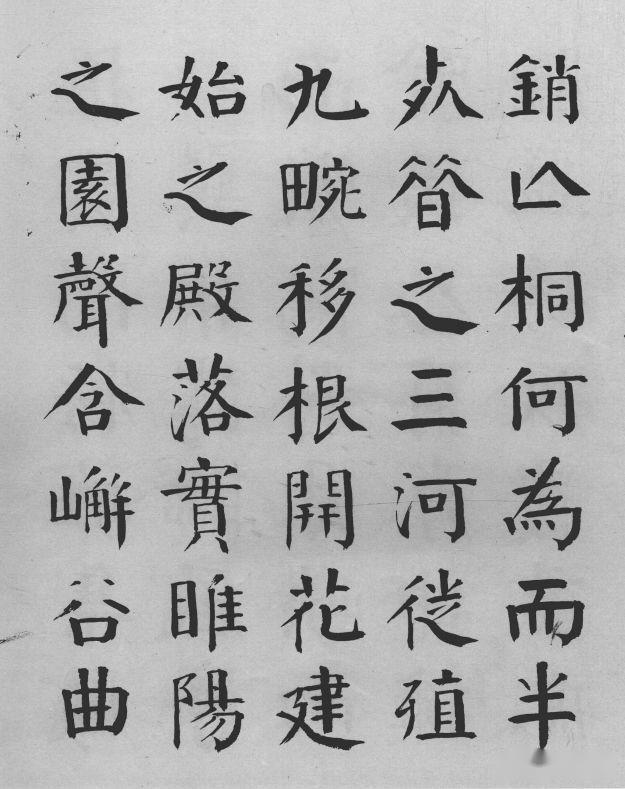 銷亾桐何為而半
𣦸㫺之三河徙殖
九畹移根開花建
始之殿落實睢陽
之園聲含嶰谷曲